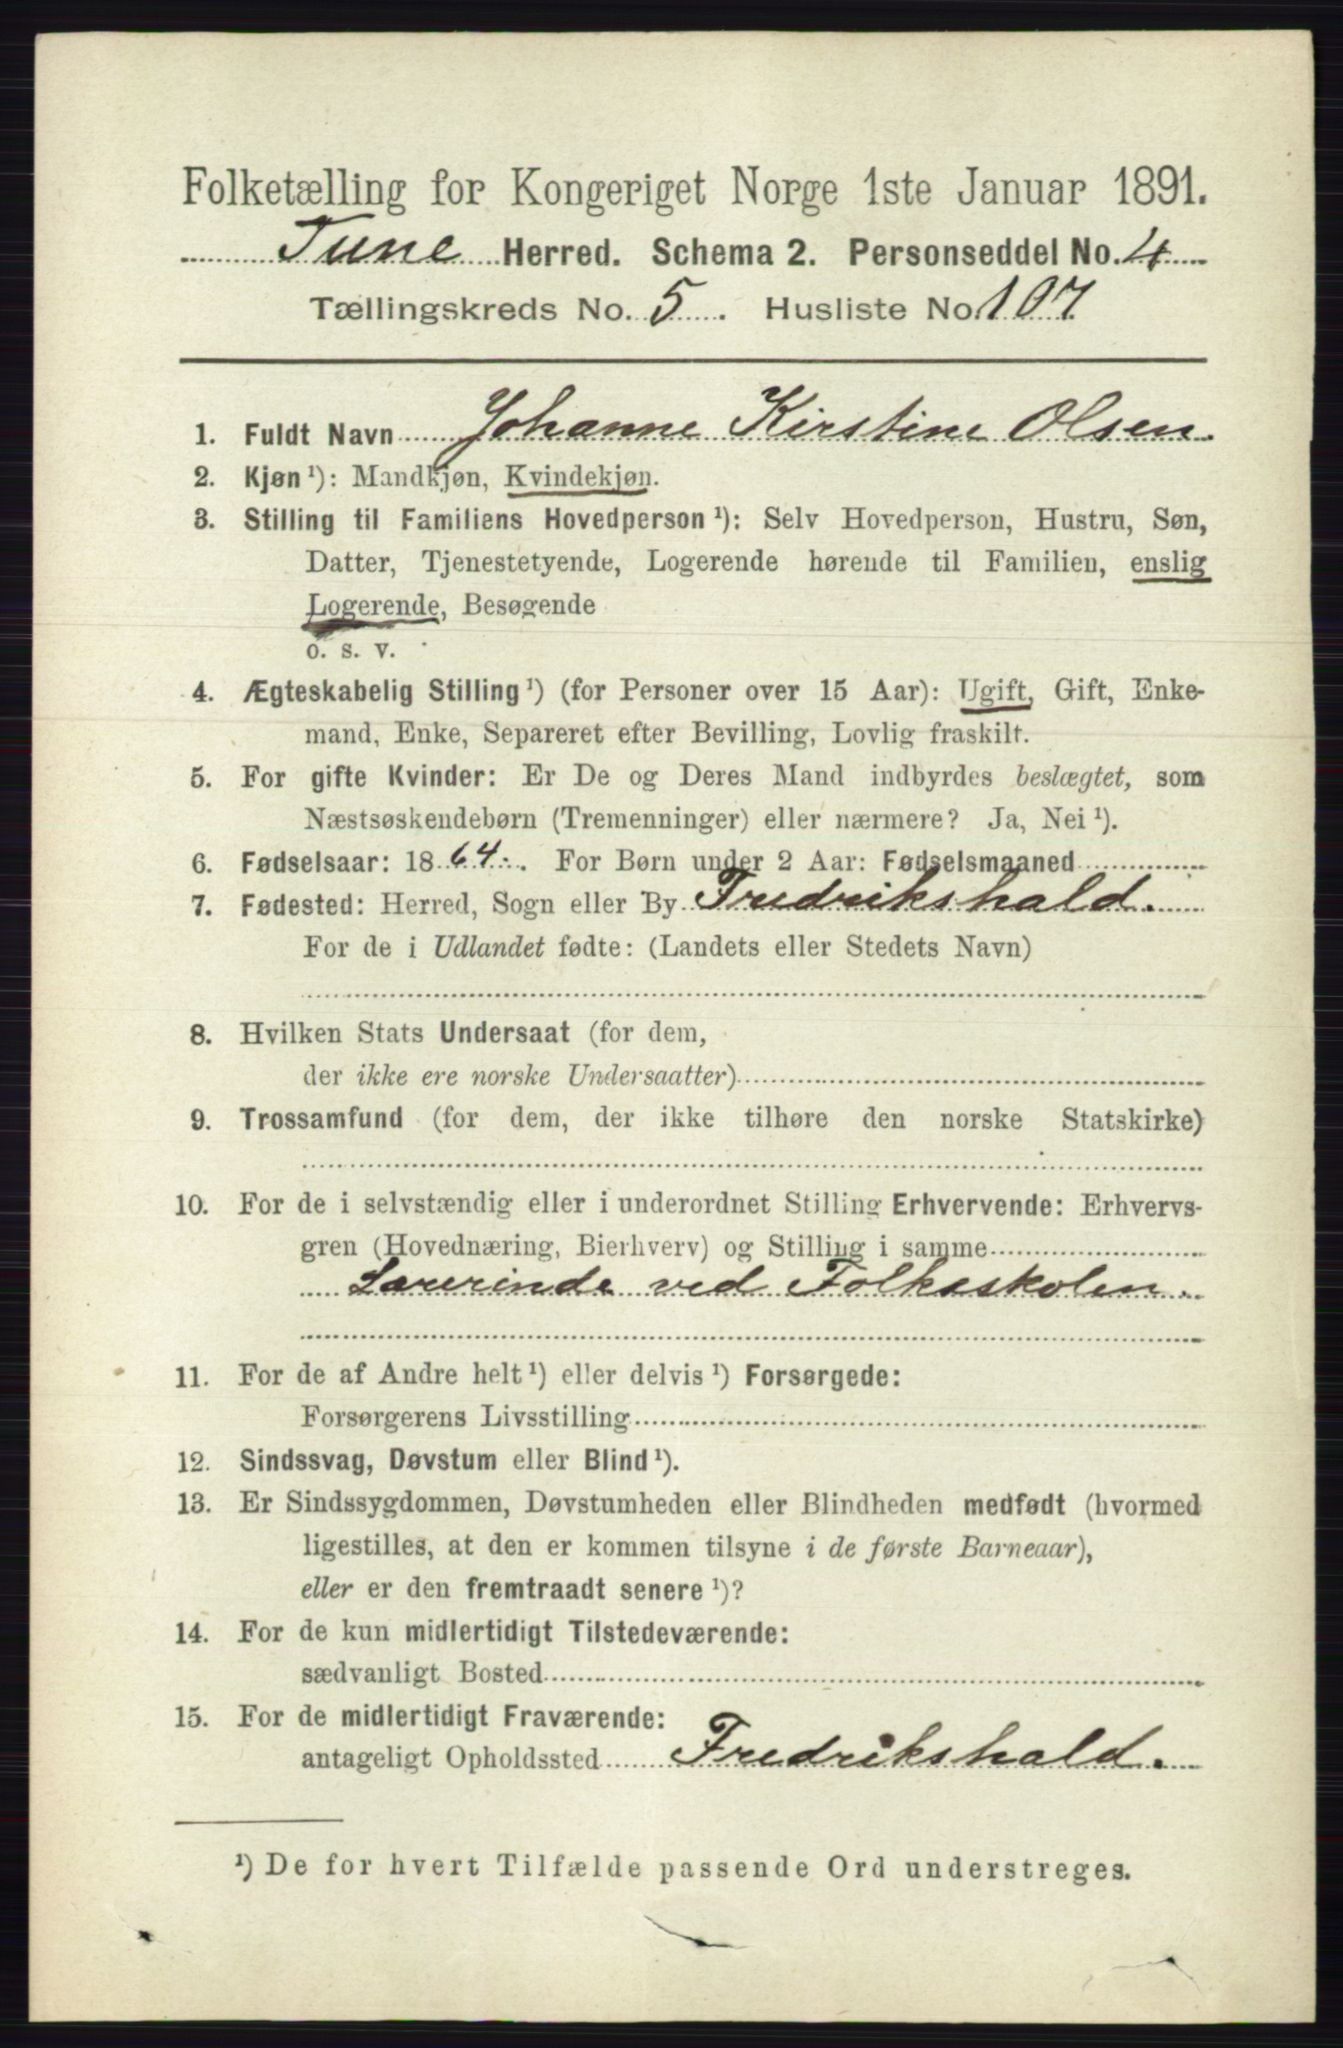 Folketælling for Kongeriget Norge 1ste Januar 1891.
Tune Herred. Schema 2. Personseddel No. 4
Tællingskreds No. 5. Husliste No. 107
1. Fuldt Navn Johanne Kirstine Olsen.
2. Kjøn ¹): Mandkjøn, Kvindekjøn.
3. Stilling til Familiens Hovedperson ¹): Selv Hovedperson, Hustru, Søn,
Datter, Tjenestetyende, Logerende hørende til Familien, enslig
Logerende, Besøgende
o. s. v.
4. Ægteskabelig Stilling ¹) (for Personer over 15 Aar): Ugift, Gift, Enke-
mand, Enke, Separeret efter Bevilling, Lovlig fraskilt.
5. For gifte Kvinder: Er De og Deres Mand indbyrdes beslægtet, som
Næstsøskendebørn (Tremenninger) eller nærmere? Ja, Nei ¹).
6. Fødselsaar: 1864. For Børn under 2 Aar: Fødselsmaaned
7. Fødested: Herred, Sogn eller By Fredrikshald.
For de i Udlandet fødte: (Landets eller Stedets Navn)
8. Hvilken Stats Undersaat (for dem,
der ikke ere norske Undersaatter)
9. Trossamfund (for dem, der ikke tilhøre den norske Statskirke)
10. For de i selvstændig eller i underordnet Stilling Erhvervende: Erhvervs-
gren (Hovednæring, Bierhverv) og Stilling i samme
Lærerinde ved Folkeskolen.
11. For de af Andre helt ¹) eller delvis ¹) Forsørgede:
Forsørgerens Livsstilling
12. Sindssvag, Døvstum eller Blind ¹).
13. Er Sindssygdommen, Døvstumheden eller Blindheden medfødt (hvormed
ligestilles, at den er kommen tilsyne i de første Barneaar),
eller er den fremtraadt senere ¹)?
14. For de kun midlertidigt Tilstedeværende:
sædvanligt Bosted
15. For de midlertidigt Fraværende:
antageligt Opholdssted Fredrikshald.
¹) De for hvert Tilfælde passende Ord understreges.